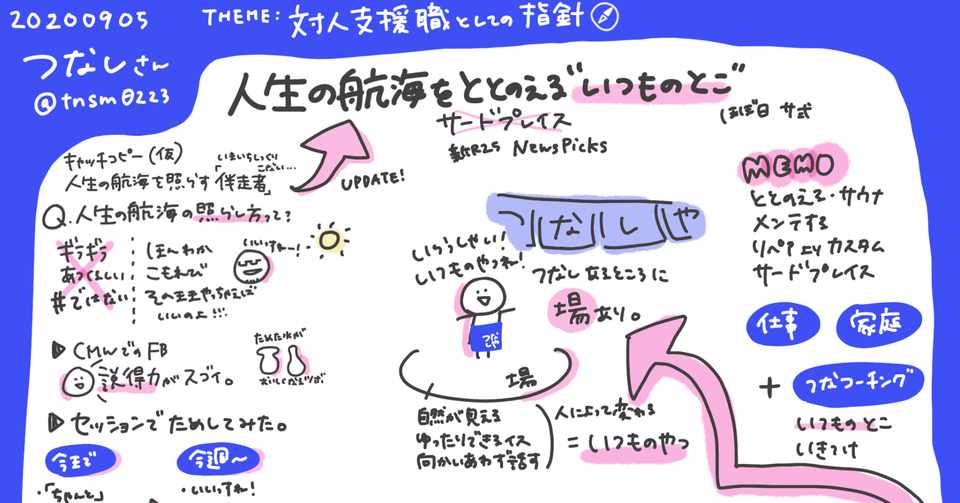 20200905
THEME: 対人支援職としての指針
つなしさん
@tnsm0223
人生の航海をととのえる"いつものとこ"
サードプレイス
新R25 NewsPicks
(ほぼ日 サ式
キャッチコピー(仮)
いまいちしっくりこない…
人生の航海を照らす「伴走者」
UPDATE!
Q.人生の航海の照らし方って?
ギラギラ
あつくるしい
#ではない
ほんわか
こもれび
そのままやっちゃえば
いいのよ!!!
いいすねー!
▷CMWでのFB
説得力がスゴイ。
ためた水が
おいしくなるツボ
▷セッションでためしてみた。
今まで
・「ちゃんと」
今週〜
・いいっすね!
つなしや
いらっしゃい!
いつものやつね!
つなしや
つなしなるところに
場あり。
場
自然が見える
ゆったりできるイス
向かいあわず話す
人によって変わる
=いつものやつ
MEMO
ととのえる・サウナ
メンテする
リペア ny カスタム
サードプレイス
仕事
家庭
+ つなコーチング
いつものとこ
いきつけ